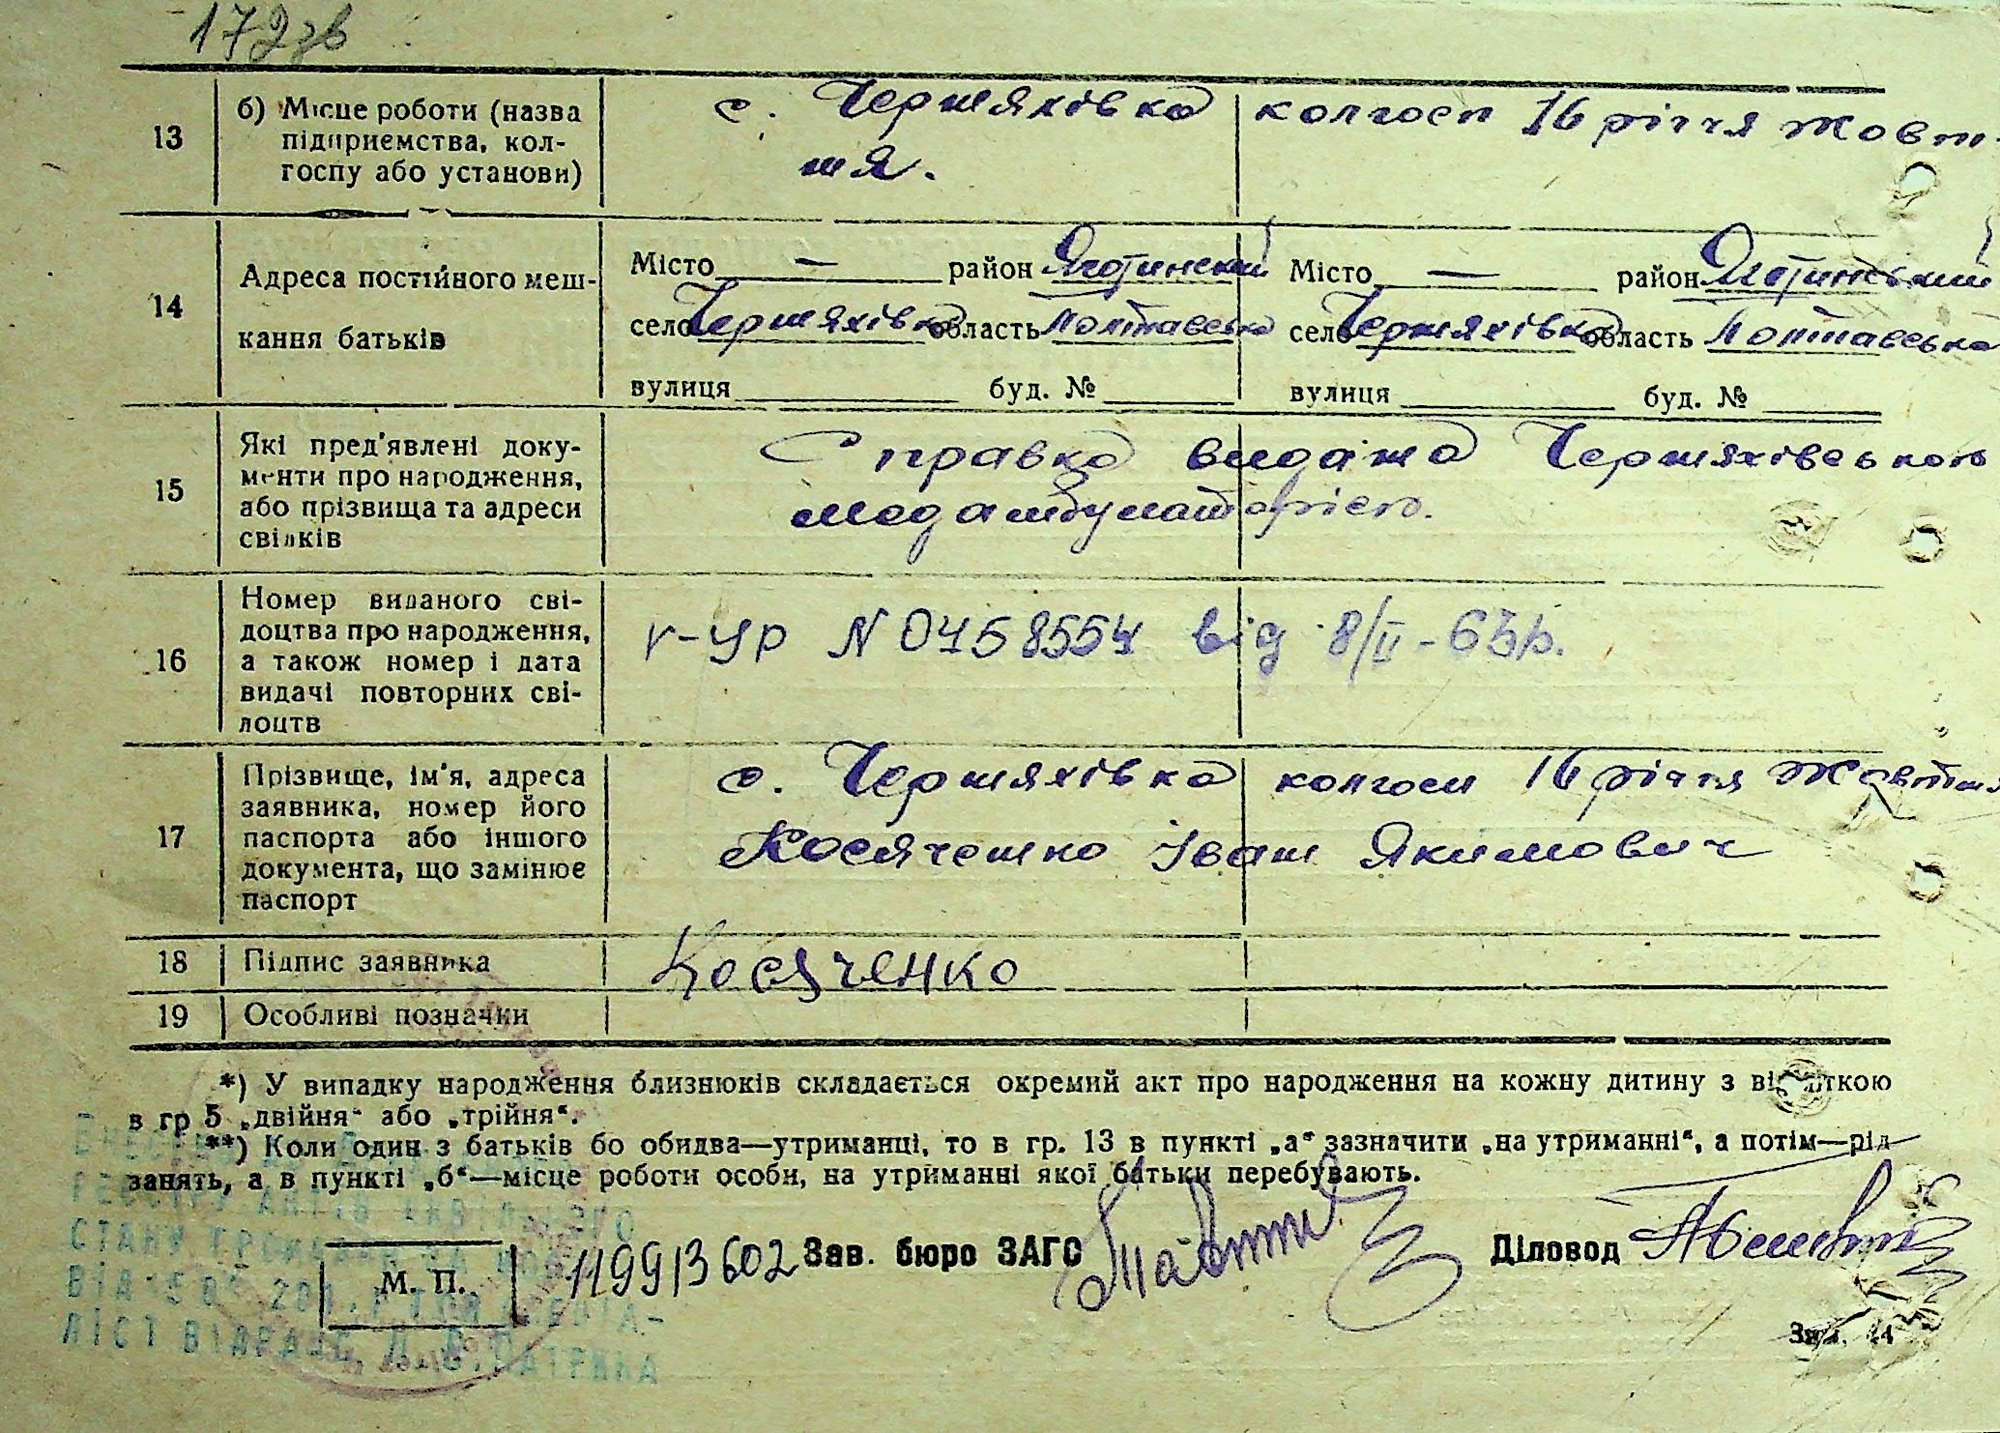 172зв
13
б) Місце роботи (назва
підприємства, кол-
госпу або установи)
с. Черняхівка колгосп 16 річчя Жовт-
ня.
14
Адреса постійного меш-
кання батьків
Місто — район Яготинский
село Черняхівка область Полтавська
вулиця буд. №
Місто — район Яготинський
село Черняхівка область Полтавська
вулиця буд. №
15
Які пред'явлені доку-
менти про народження,
або прізвища та адреси
свідків
Справка видана Черняхівською
медамбулаторією.
16
Номер виданого сві-
доцтва про народження,
а також номер і дата
видачі повторних сві-
доцтв
V-УР N 0458554 від 8/II-63р.
17
Прізвище, ім'я, адреса
заявника, номер його
паспорта або іншого
документа, що замінює
паспорт
с. Черняхівка колгосп 16 річчя Жовтня
Косяченко Іван Якимович
18
Підпис заявника
Косяченко
19
Особливі позначки
*) У випадку народження близнюків складається окремий акт про народження на кожну дитину з відміткою
в гр 5 „двійня“ або „трійня“.
**) Коли один з батьків бо обидва—утриманці, то в гр. 13 в пункті „а“ зазначити „на утриманні“, а потім—рід
занять, а в пункті „б“—місце роботи особи, на утриманні якої батьки перебувають.
М. П.
119913602
Зав. бюро ЗАГС
Діловод
СТАНУ ГРОМАДЯН ЗА